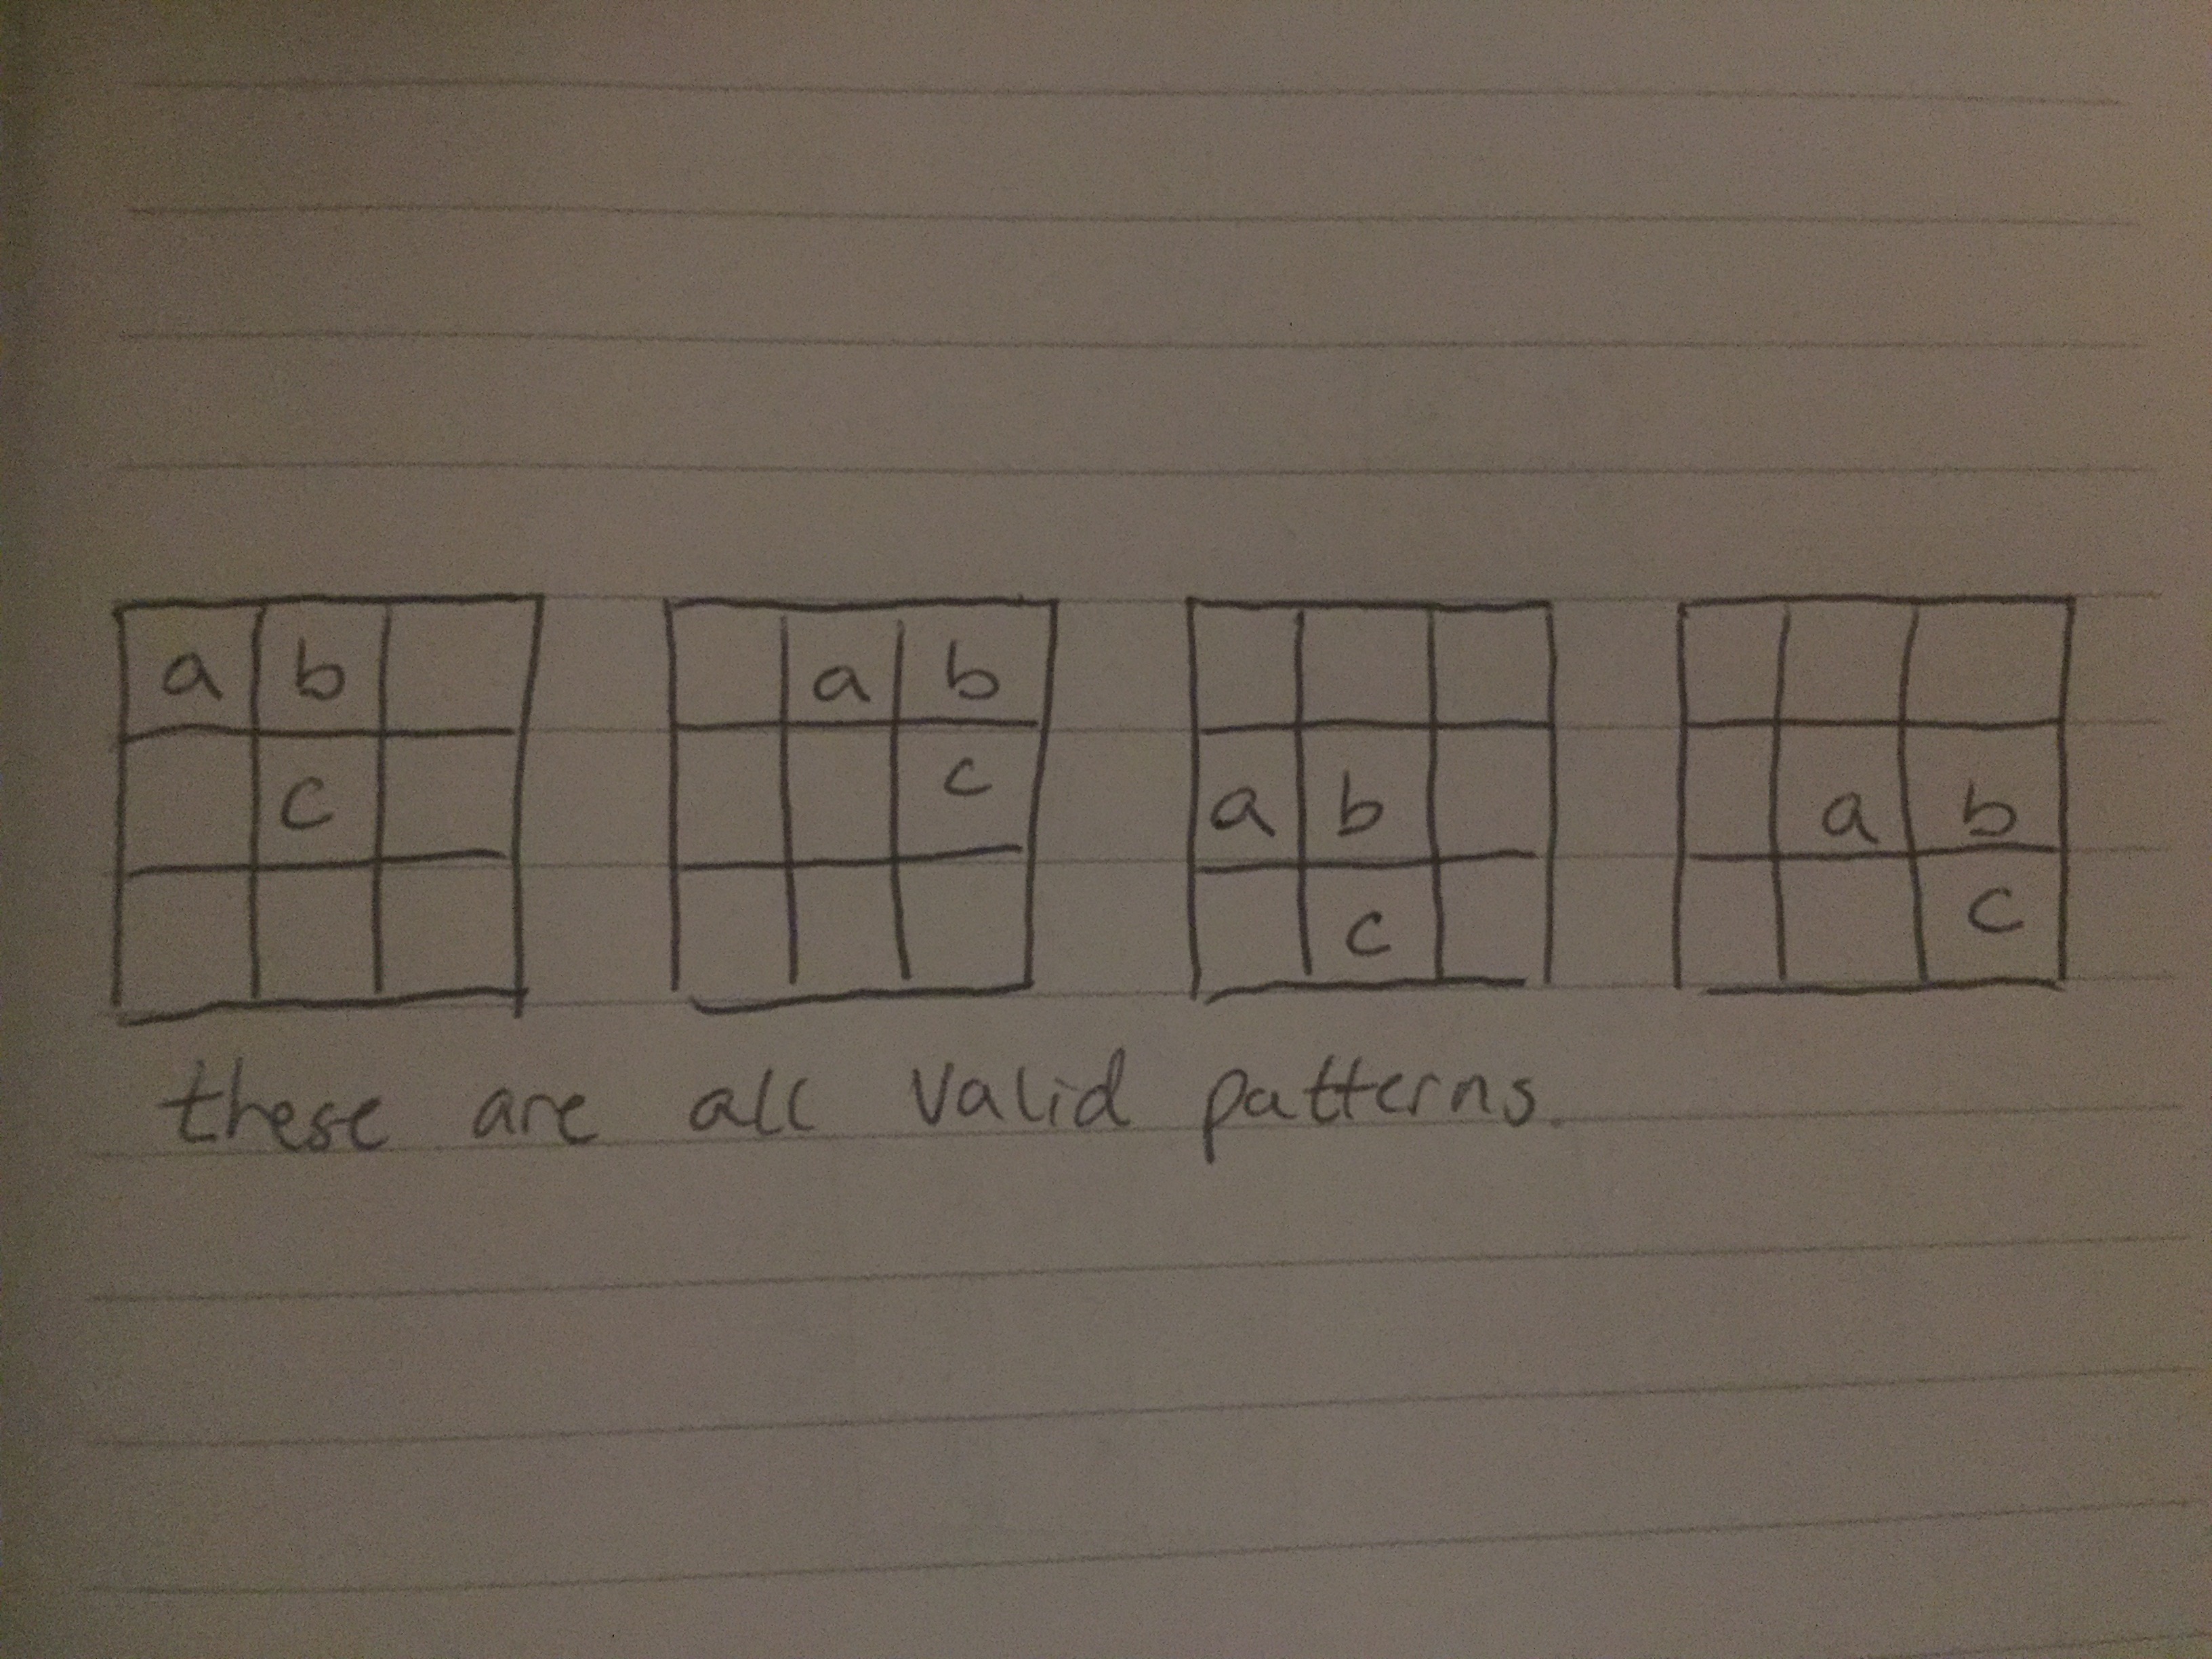 a b a b
c c a b a b
c c
these are all valid patterns.